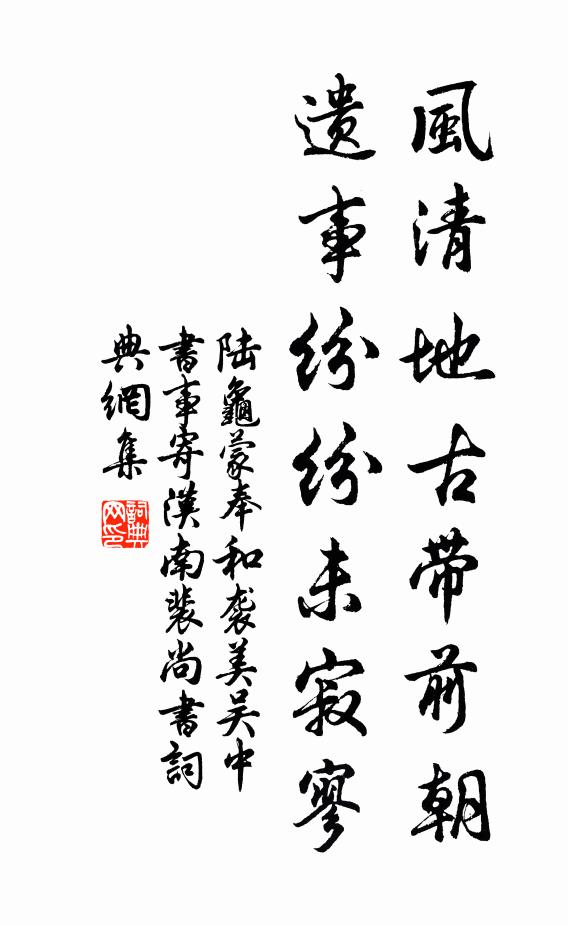 風清地古带前朝
遺事紛紛未寂寥
陆龜蒙奉和袭美吴中
書事寄漢南裴尚書詞
典網集
詞典
网印